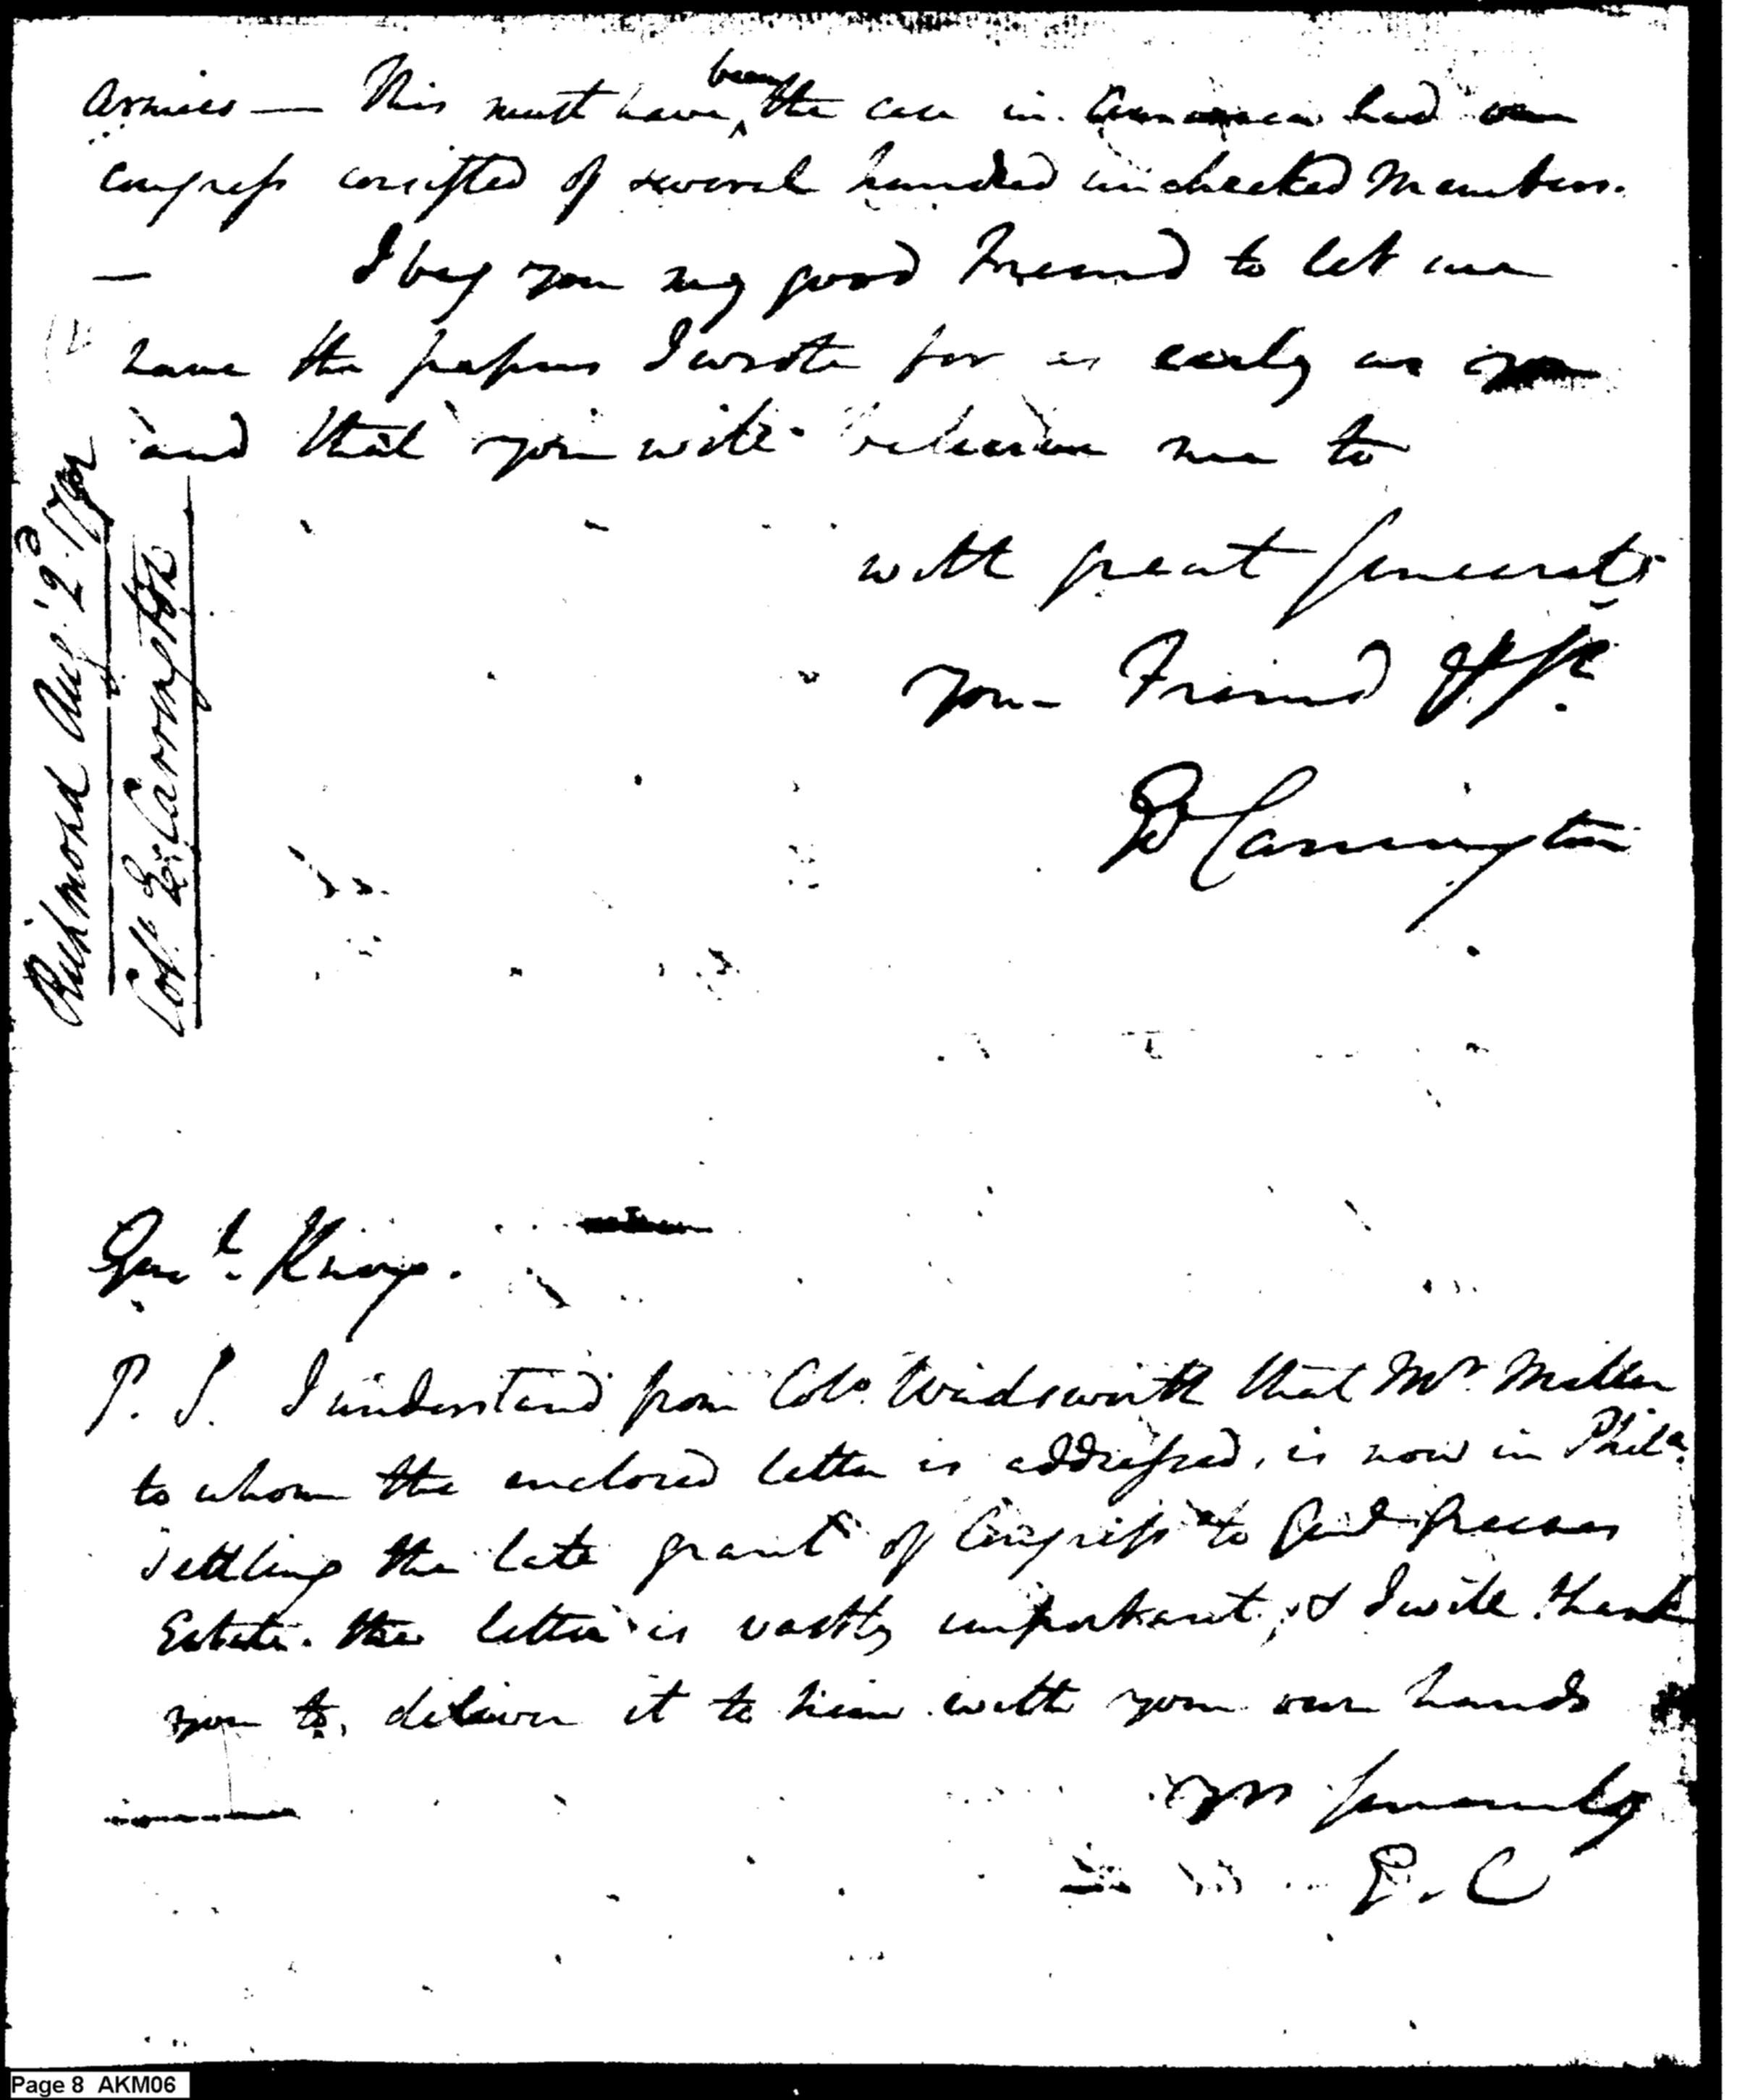 armies — This must have been the case in America had our
congress consisted of several hundred unchecked Members.
— I beg you my good Friend to let me
have the papers I wrote for as early as
and that you will believe me to
with great sincerity
your Friend & Sr.
Ed Carrington
Richmond Augt 2d. 179
Coll. Ed. Carrington
Genl. Knox.
P. S. I understand from Colo. Wadsworth that Mr. Miller
to whom the enclosed letter is addressed, is now in Phila.
settling the late grant of Congress to Genl Greenes
Estate. the letter is vastly important, & I will thank
you to deliver it to him with your own hands
Yrs sincerely
E. C
Page 8 AKM06